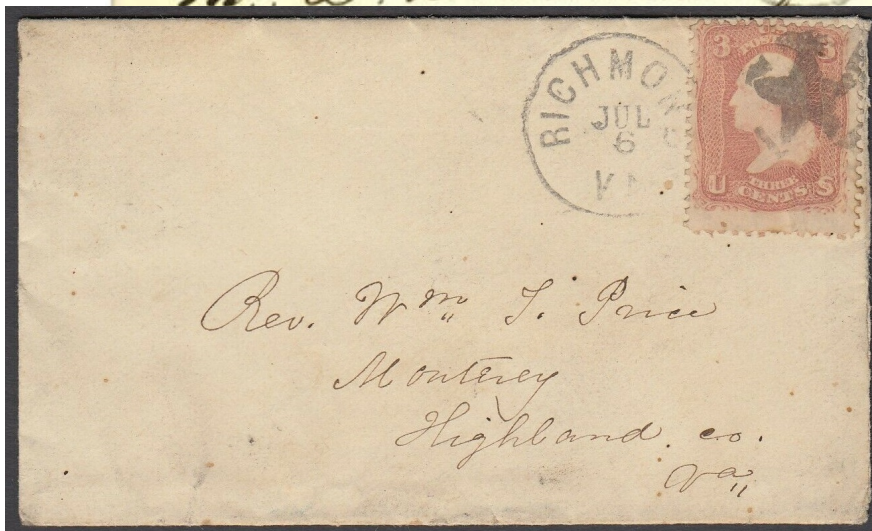 RICHMOND
JUL
6
VA
3 3
U THREE S
CENTS
Rev. Wm. T. Price
Monterey
Highland co.
Va